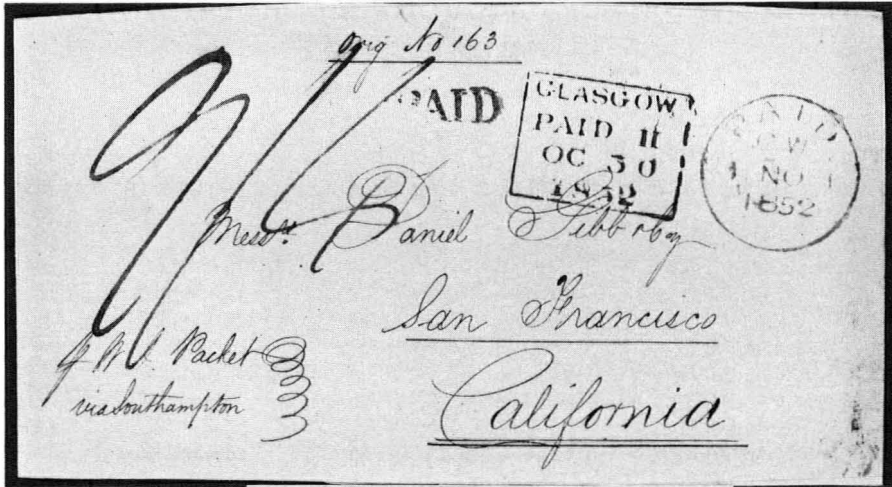 Orig No 163
PAID
GLASGOW
PAID 11
OC 30
1852
PAID
NO 1
1852
Messrs. Daniel Gibb & Co
San Francisco
California
W. I. Packet
via Southampton